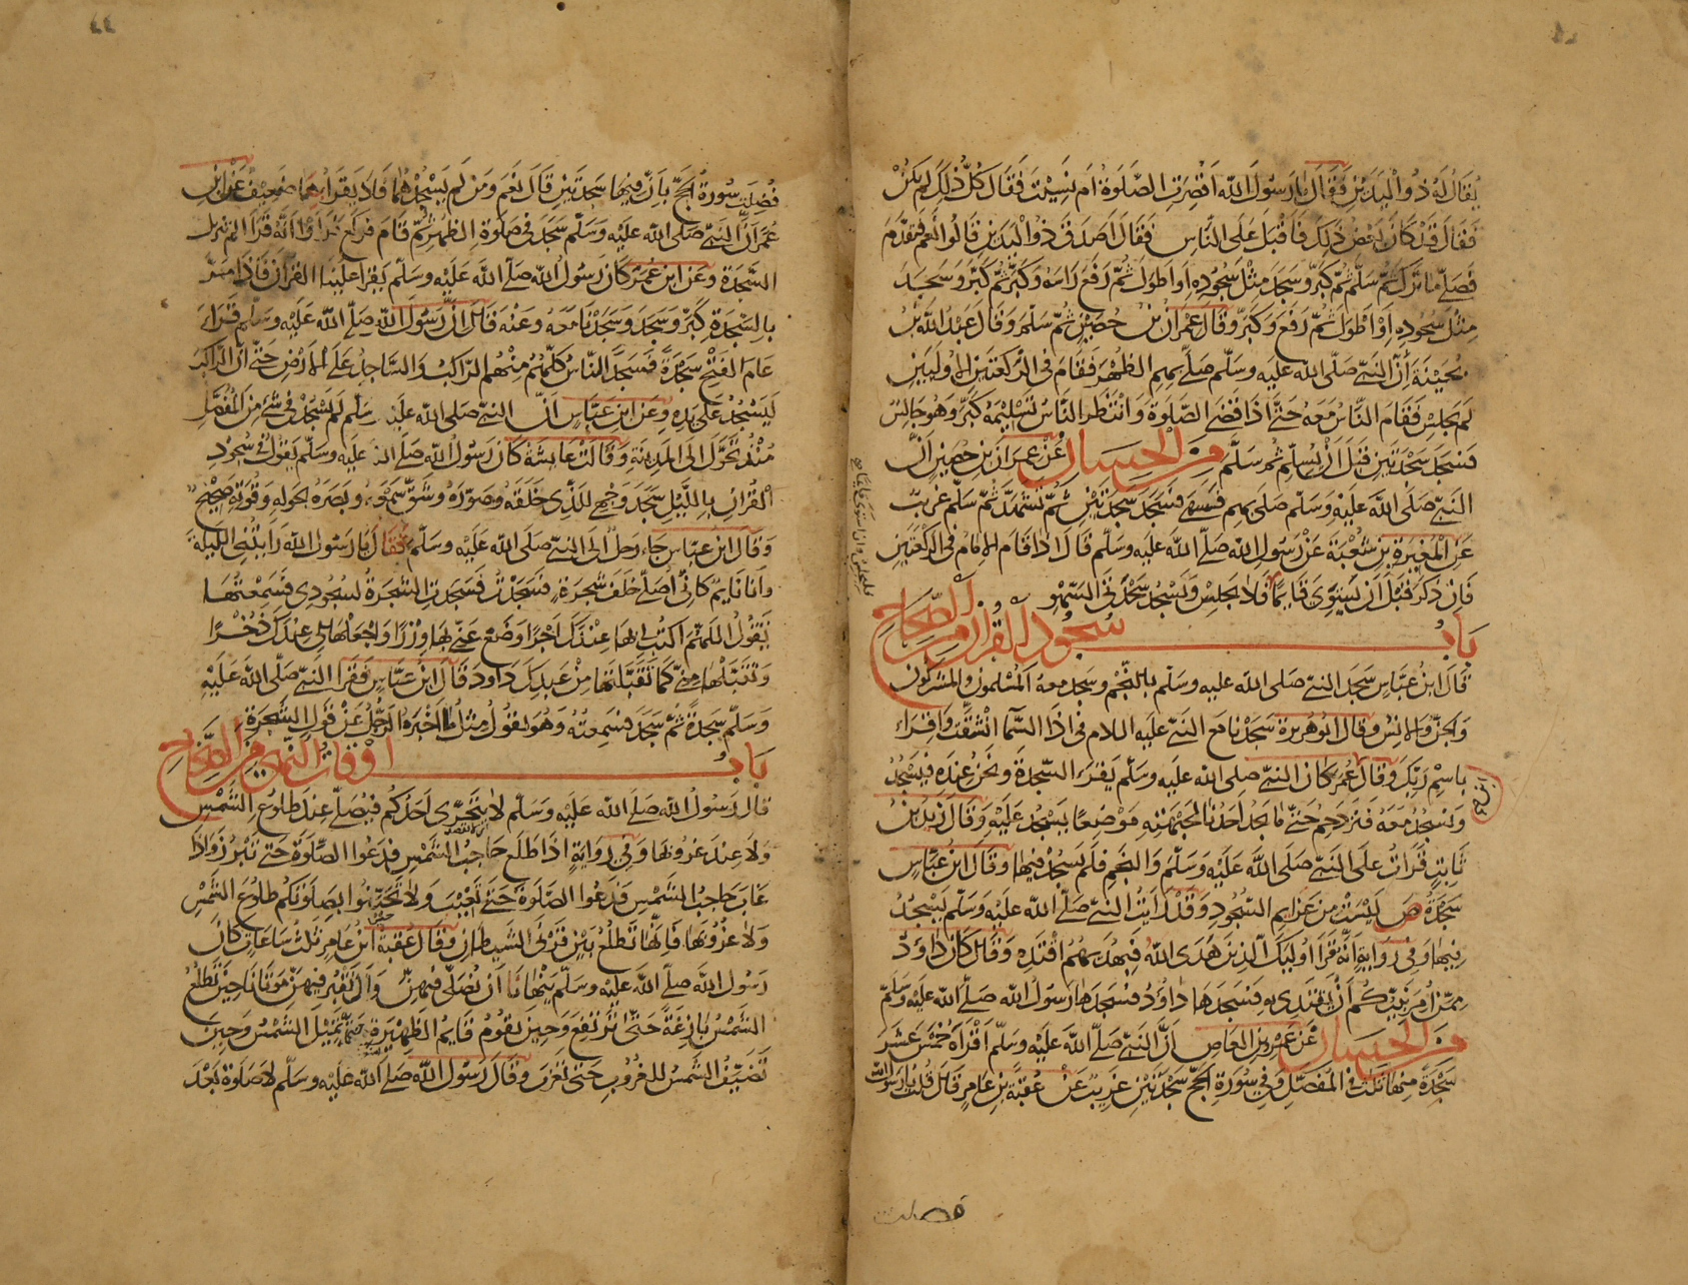 يقال له ذو اليدين فقال يا رسول الله اقصرت الصلوة ام نسيت فقال كل ذلك لم يكن
فقال قد كان بعض ذلك فاقبل على الناس فقال اصدق ذو اليدين قالوا نعم فتقدم
فصلى ما ترك ثم سلم ثم كبر وسجد مثل سجوده او اطول ثم رفع راسه وكبر ثم كبر وسجد
مثل سجوده او اطول ثم رفع وكبر وقال عمران بن حصين ثم سلم وقال عبد الله بن
بحينة أن النبي صلى الله عليه وسلم صلى بهم الظهر فقام في الركعتين الاوليين
لم يجلس فقام الناس معه حتى اذا قضى الصلوة وانتظر الناس تسليمه كبر وهو جالس
فسجد سجدتين قبل ان يسلم ثم سلم من الحسان عن عمران بن حصين ان
النبي صلى الله عليه وسلم صلى بهم فسهى فسجد سجدتين ثم تشهد ثم سلم غريب
عن المغيرة بن شعبة عن رسول الله صلى الله عليه وسلم قال اذا قام الامام في الركعتين
فان ذكر قبل ان يستوي قايما فلا يجلس ويسجد سجدتي السهو
باب سجود القرآن من الصحاح
قال ابن عباس سجد النبي صلى الله عليه وسلم بالنجم وسجد معه المسلمون والمشركون
والجن والانس وقال ابو هريرة سجدنا مع النبي عليه السلام في اذا السما انشقت واقرأ
باسم ربك وقال ابن عمر كان النبي صلى الله عليه وسلم يقرء السجدة ونحن عنده فيسجد
ونسجد معه فنزدحم حتى ما يجد احدنا لجبهته موضعا يسجد عليه وقال زيد بن
ثابت قرات على النبي صلى الله عليه وسلم والنجم فلم يسجد فيها وقال ابن عباس
سجدة ص ليست من عزايم السجود وقد رايت النبي صلى الله عليه وسلم يسجد
فيها وفي رواية انه قرا اوليك الذين هدى الله فبهديهم اقتده وقال كان داود
ممن امر نبيكم أن يقتدي به فسجدها داود فسجدها رسول الله صلى الله عليه وسلم
من الحسان عن عمرو بن العاص ان النبي صلى الله عليه وسلم اقرأه خمس عشر
سجدة منها ثلث في المفصل وفي سورة الحج سجدتين غريب عن عقبة بن عامر قال قلت يا رسول الله
فضلت
فضلت سورة الحج بان فيها سجدتين قال نعم ومن لم يسجدهما فلا يقراهما ضعيف عن ابن
عمر أن النبي صلى الله عليه وسلم سجد في صلوة الظهر ثم قام فركع فراوا انه قرا الم تنزيل
السجدة وعن ابن عمر كان رسول الله صلى الله عليه وسلم يقرا علينا القرآن فاذا مر
بالسجدة كبر وسجد وسجدنا معه وعنه قال ان رسول الله صلى الله عليه وسلم قرأ
عام الفتح سجدة فسجد الناس كلهم منهم الراكب والساجد على الارض حتى ان الراكب
ليسجد على يده وعن ابن عباس ان النبي صلى الله عليه وسلم لم يسجد في شيء من المفصل
منذ تحول الى المدينة وقالت عايشة كان رسول الله صلى الله عليه وسلم يقول في سجود
القرآن بالليل سجد وجهي للذي خلقه وصوره وشق سمعه وبصره بحوله وقوته صحيح
وقال ابن عباس جاء رجل الى النبي صلى الله عليه وسلم فقال يا رسول الله رايتني الليلة
وانا نايم كاني اصلي خلف شجرة فسجدت فسجدت الشجرة لسجودي فسمعتها
تقول اللهم اكتب لي بها عندك اجرا وضع عني بها وزرا واجعلها لي عندك ذخرا
وتقبلها مني كما تقبلتها من عبدك داود قال ابن عباس فقرا النبي صلى الله عليه
وسلم سجدة ثم سجد فسمعته وهو يقول مثل ما اخبره الرجل عن قول الشجرة
باب اوقات النهي من الصحاح
قال رسول الله صلى الله عليه وسلم لا يتحرى احدكم فيصلي عند طلوع الشمس
ولا عند غروبها وفي رواية اذا طلع حاجب الشمس فدعوا الصلوة حتى تبرز واذا
غاب حاجب الشمس فدعوا الصلوة حتى تغيب ولا تحينوا بصلوتكم طلوع الشمس
ولا غروبها فانها تطلع بين قرني الشيطان وقال عقبة ابن عامر ثلث ساعات كان
رسول الله صلى الله عليه وسلم ينهانا ان نصلي فيهن وان نقبر فيهن موتانا حين تطلع
الشمس بازغة حتى ترتفع وحين يقوم قايم الظهيرة حتى تميل الشمس وحين
تضيف الشمس للغروب حتى تغرب وقال رسول الله صلى الله عليه وسلم لا صلوة بعد